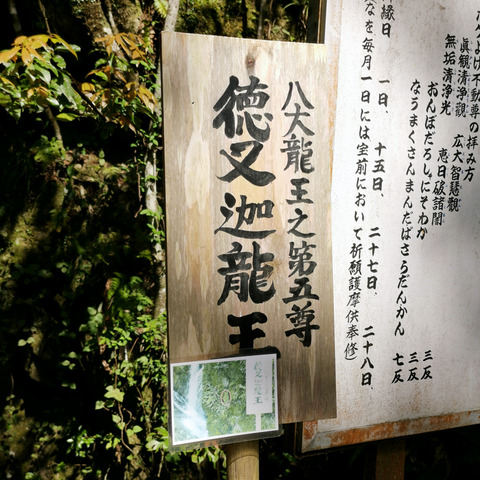 よけ不動尊の拝み方
眞観清浄観 広大智慧観
無垢清浄光 恵日破諸闇 三反
おんぼだろしにそわか 三反
なうまくさんまんだばさらだんかん 七反
縁日 一日、十五日、二十七日、二十八日、
なを毎月一日には宝前において祈願護摩供奉修)
八大龍王之第五尊
徳叉迦龍王